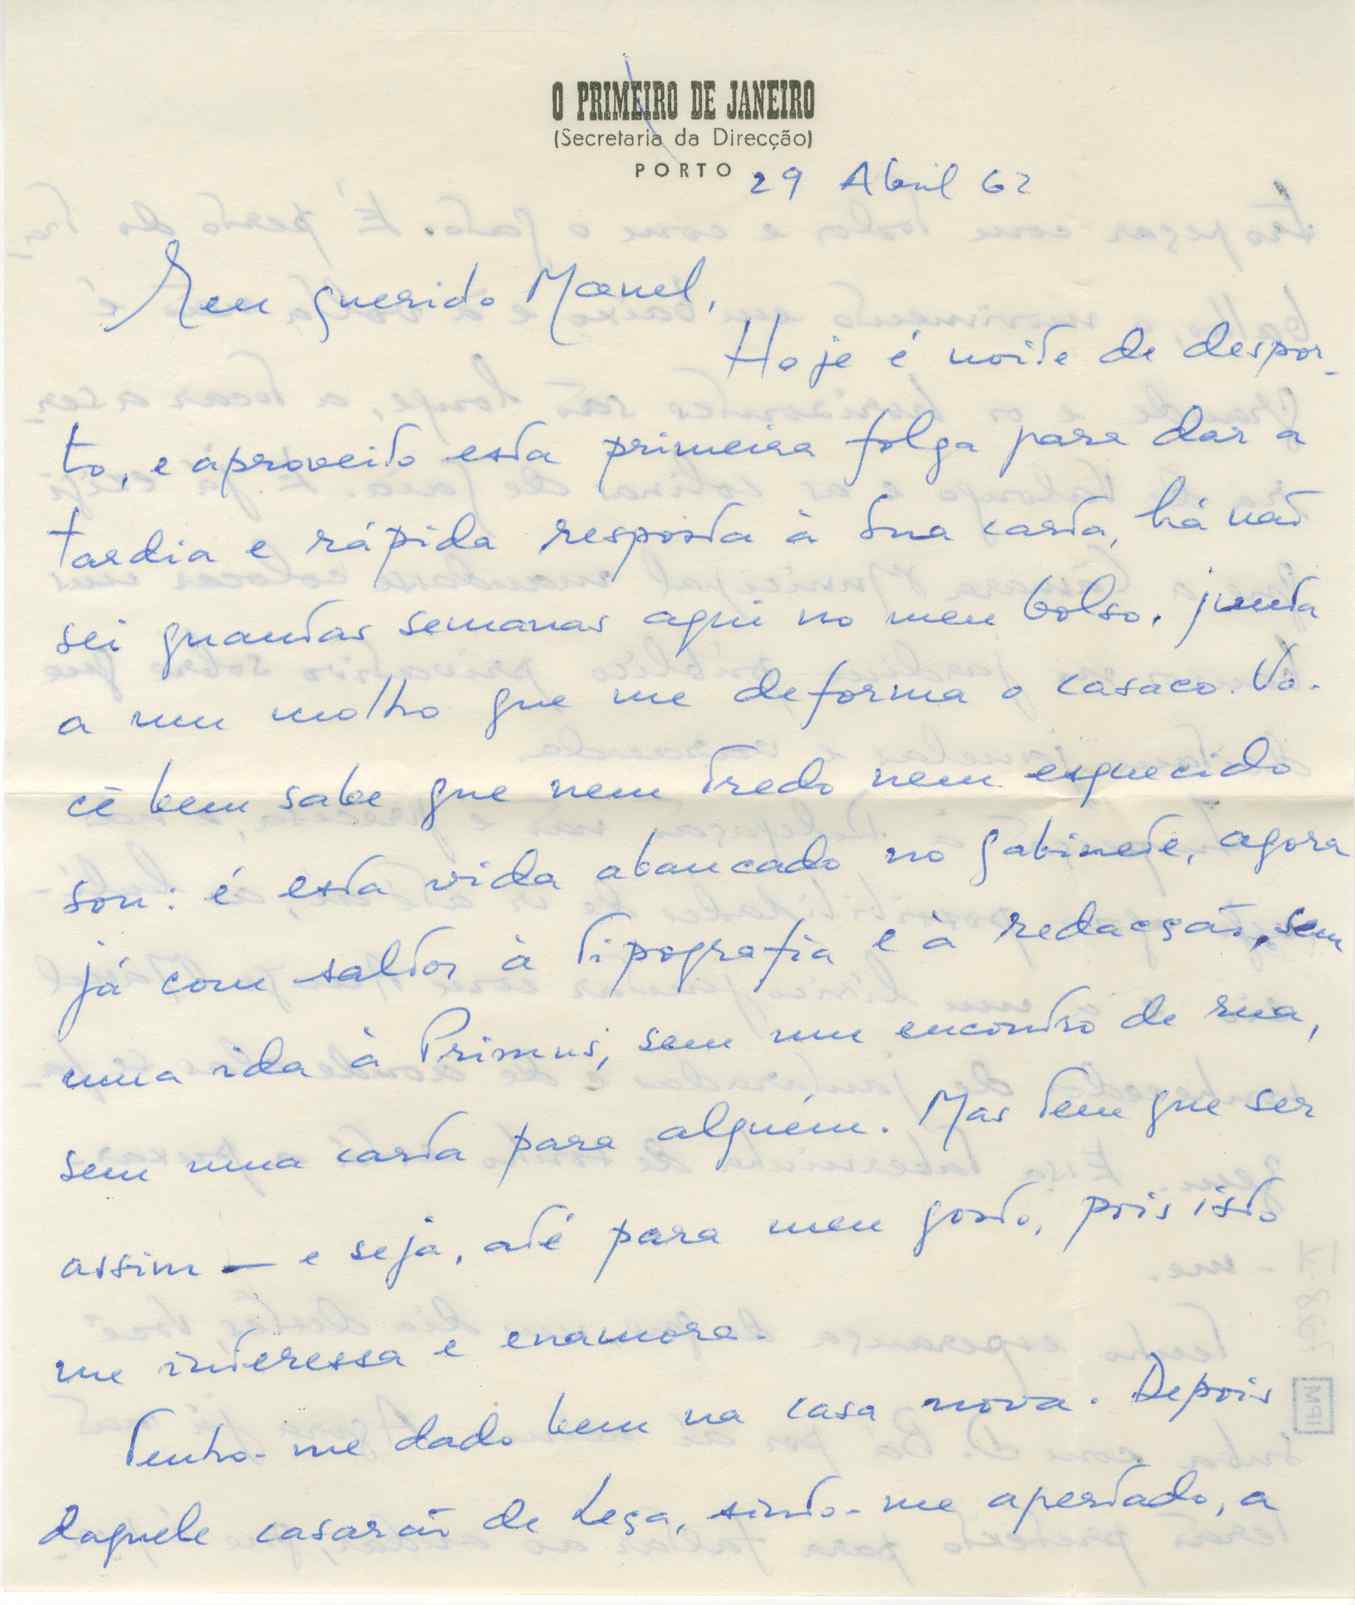 O PRIMEIRO DE JANEIRO
(Secretaria da Direcção)
PORTO
29 Abril 62
Meu querido Manel,
Hoje é noite de despor-
to, e aproveito esta primeira folga para dar a
tardia e rápida resposta à sua carta, há não
sei quantas semanas aqui no meu bolso, junta
a um molho que me deforma o casaco. Vo-
cê bem sabe que nem tredo nem esquecido
sou: é esta vida abancado no gabinete, agora
já com saltos à tipografia e à redacção, sem
uma ida à Primus, sem um encontro de rua,
sem uma carta para alguém. Mas tem que ser
assim — e seja, até para meu gosto, pois isto
me interessa e enamora.
Tenho-me dado bem na casa nova. Depois
daquele casarão de Leça, sinto-me apertado, a
IPM